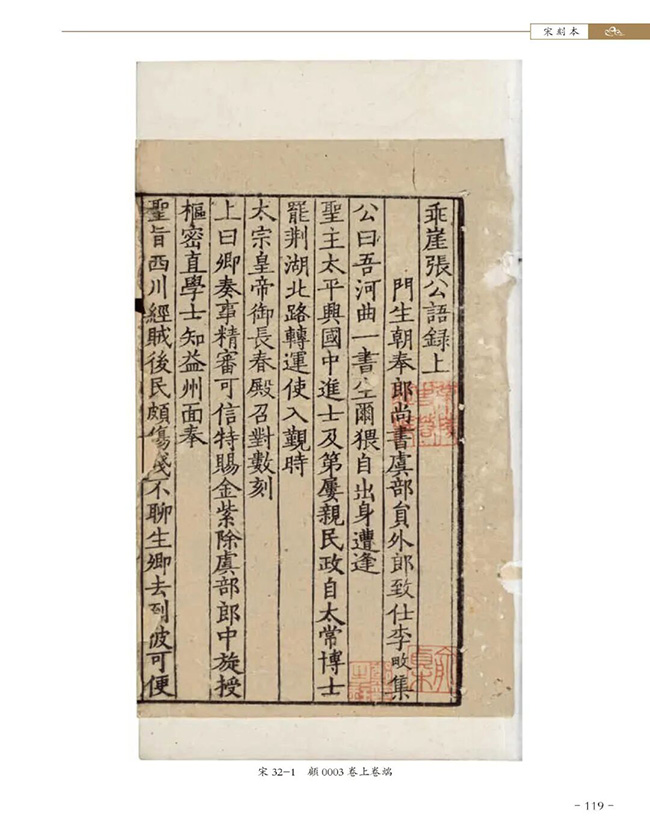 宋刻本
乖崖張公語録上
門生朝奉郎尚書虞部員外郎致仕李畋集
公曰吾河曲一書生爾猥自出身遭逢
聖主太平興國中進士及第屢親民政自太常博士
罷荆湖北路轉運使入覲時
太宗皇帝御長春殿召對數刻
上曰卿奏事精審可信特賜金紫除虞部郎中旋授
樞密直學士知益州面奉
聖旨西川經賊後民頗傷殘不聊生卿去到彼可便
宋 32-1 顧 0003 卷上卷端
- 119 -